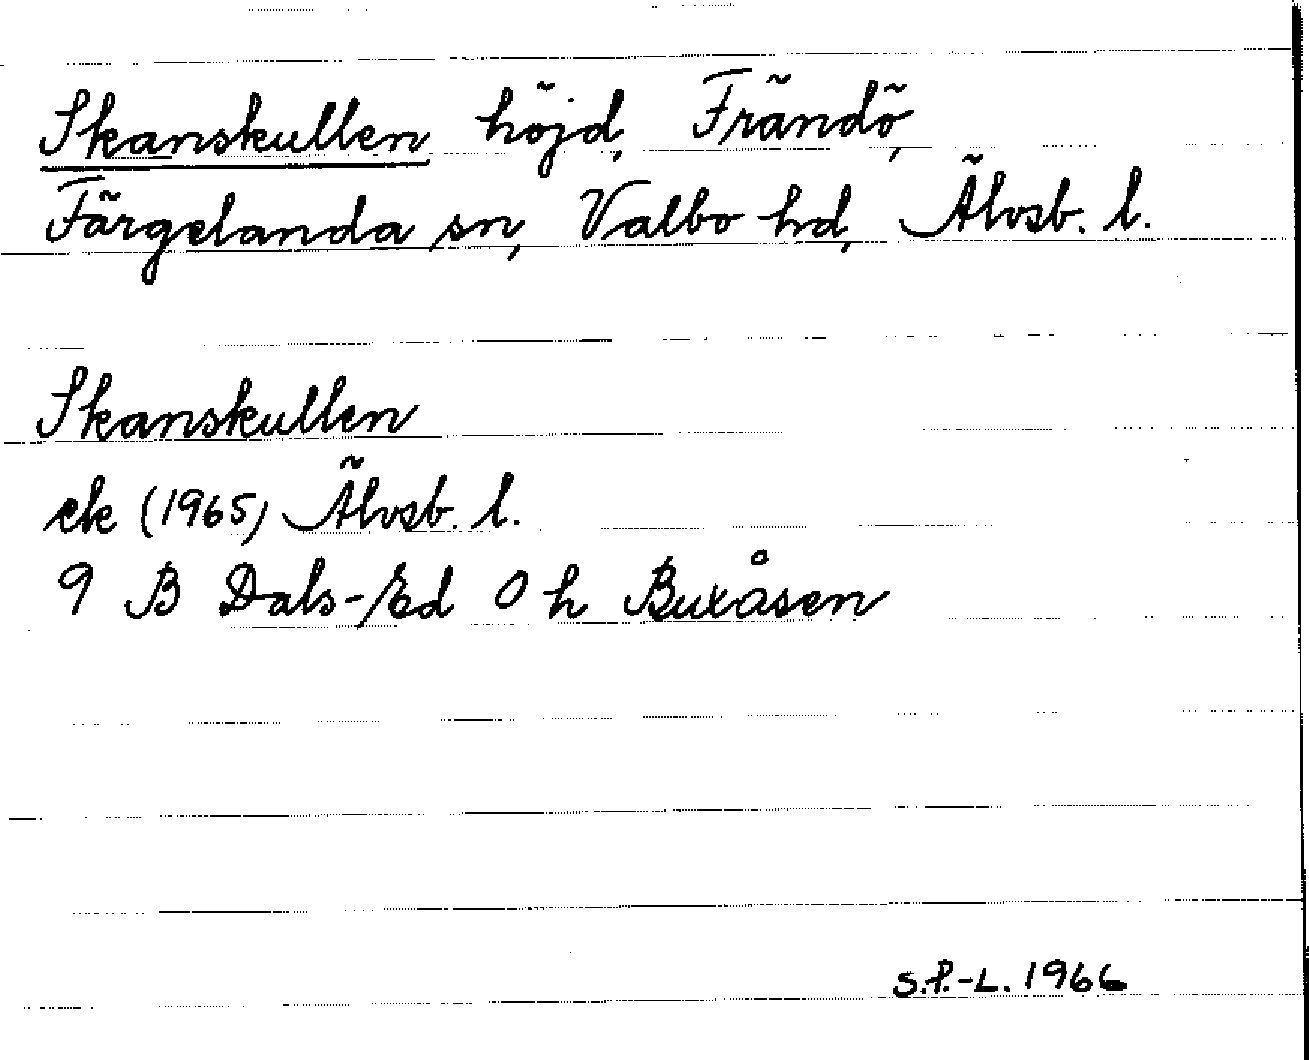 Skanskullen höjd, Frändö,
Färgelanda sn, Valbo hd, Älvsb. l.
Skanskullen
ek (1965) Älvsb. l.
9 B Dals-Ed 0 h Buxåsen
S.P.-L. 1966